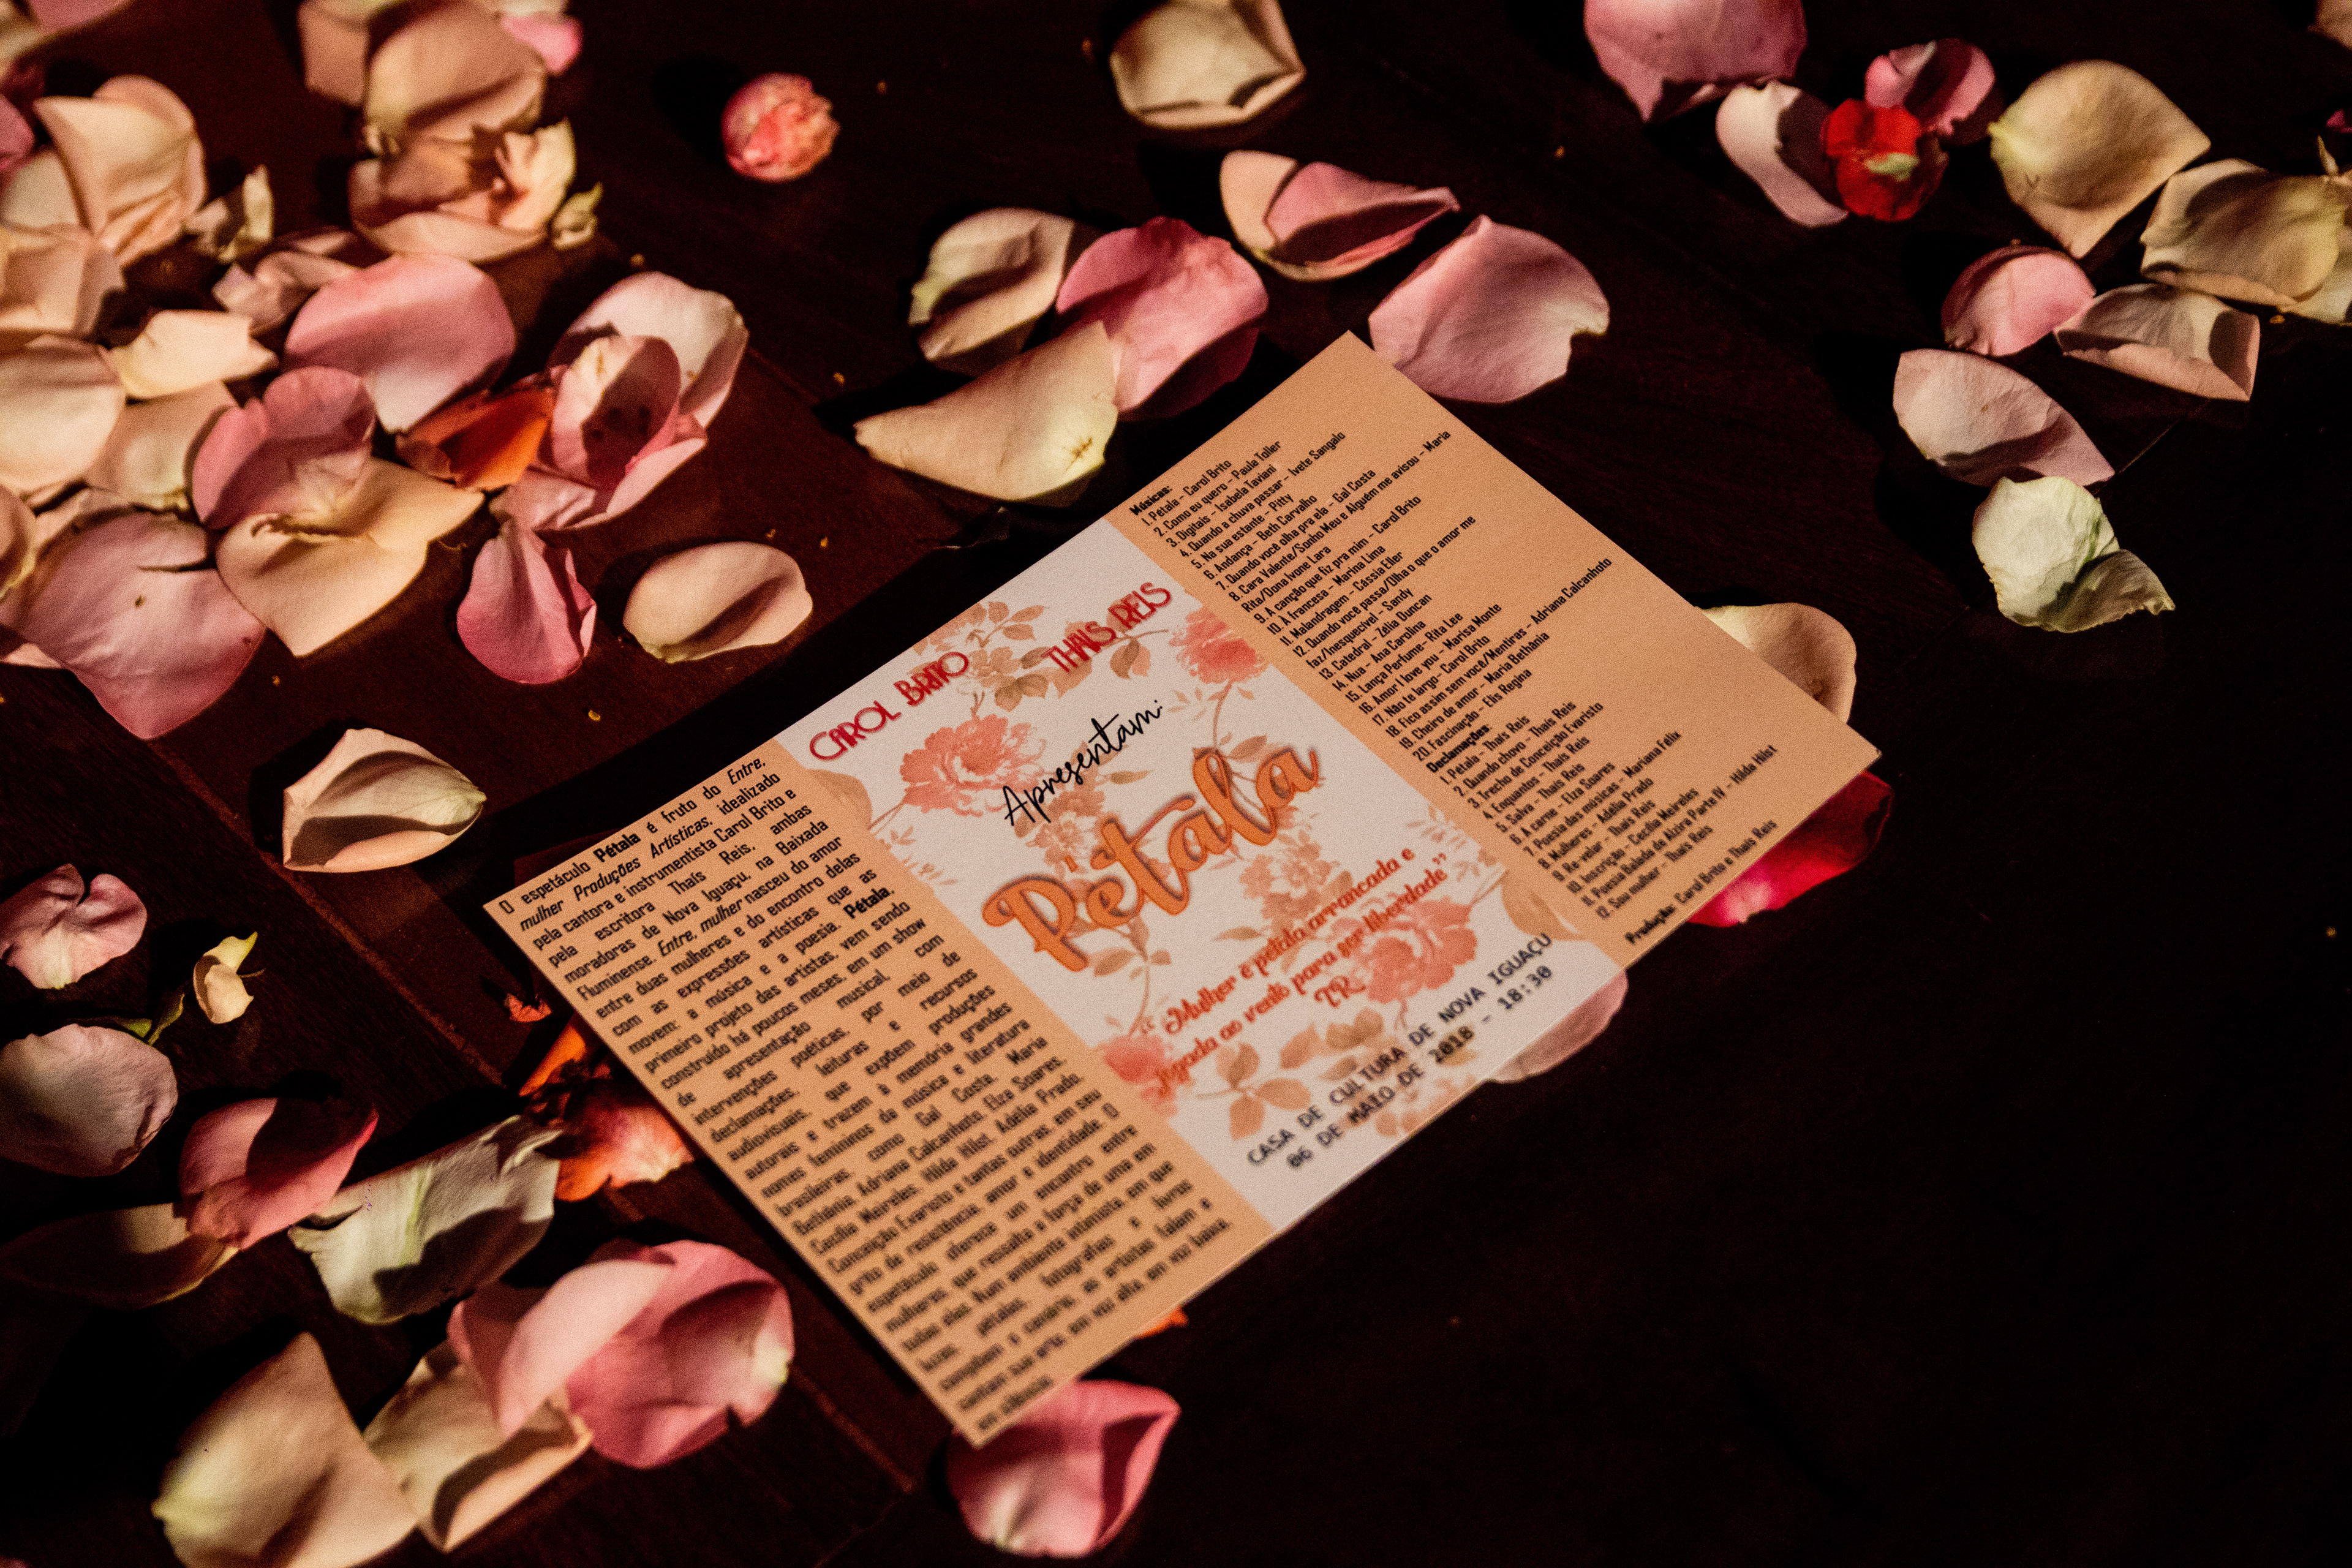 O espetáculo Pétala é fruto do Entre,
mulher Produções Artísticas, idealizado
pela cantora e instrumentista Carol Brito e
pela escritora Thais Reis, ambas
moradoras de Nova Iguaçu, na Baixada
Fluminense. Entre, mulher nasceu do amor
entre duas mulheres e do encontro delas
com as expressões artísticas que as
movem: a música e a poesia. Pétala,
primeiro projeto das artistas, vem sendo
construído há poucos meses, em um show
de apresentação musical, com
intervenções poéticas, por meio de
declamações, leituras e recursos
audiovisuais, que expõem produções
autorais e trazem à memória grandes
nomes femininos da música e literatura
brasileiras, como Gal Costa, Maria
Bethânia, Adriana Calcanhoto, Elza Soares,
Cecília Meireles, Hilda Hilst, Adélia Prado,
Conceição Evaristo e tantas outras, em seu
grito de resistência, amor e identidade. O
espetáculo oferece um encontro entre
mulheres, que ressalta a força de uma em
todas elas. Num ambiente intimista, em que
luzes, pétalas, fotografias e livros
compõem o cenário, as artistas falam e
cantam sua arte, em voz alta, em voz baixa,
em silêncio.
CAROL BRITO THAIS REIS
Apresentam:
Pétala
"Mulher é pétala arrancada e
jogada ao vento para ser liberdade"
TR
CASA DE CULTURA DE NOVA IGUAÇU
06 DE MAIO DE 2018 - 18:30
Músicas:
1. Petala - Carol Brito
2. Como eu quero - Paula Toller
3. Digitais - Isabela Taviani
4. Quando a chuva passar - Ivete Sangalo
5. Na sua estante - Pitty
6. Andança - Beth Carvalho
7. Quando você olha pra ela - Gal Costa
8. Cara Valente/Sonho Meu e Alguém me avisou - Maria
Rita/Dona Ivone Lara
9. A canção que fiz pra mim - Carol Brito
10. À francesa - Marina Lima
11. Malandragem - Cássia Eller
12. Quando você passa/Olha o que o amor me
faz/Inesquecível - Sandy
13. Catedral - Zélia Duncan
14. Nua - Ana Carolina
15. Lança Perfume- Rita Lee
16. Amor I love you - Marisa Monte
17. Não te largo- Carol Brito
18. Fico assim sem você/Mentiras - Adriana Calcanhoto
19. Cheiro de amor - Maria Bethânia
20. Fascinação - Elis Regina
Declamações:
1. Pétala - Thaís Reis
2. Quando chovo - Thaís Reis
3. Trecho de Conceição Evaristo
4. Enquantos - Thaís Reis
5. Salva - Thaís Reis
6. A carne - Elza Soares
7. Poesia das músicas - Mariana Félix
8. Mulheres - Adélia Prado
9. Re-velar - Thaís Reis
10. Inscrição - Cecília Meireles
11. Poesia Balada de Alzira Parte IV - Hilda Hilst
12. Sou mulher - Thaís Reis
Produção: Carol Brito e Thaís Reis